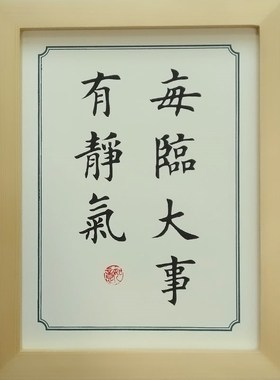 每臨大事
有靜氣